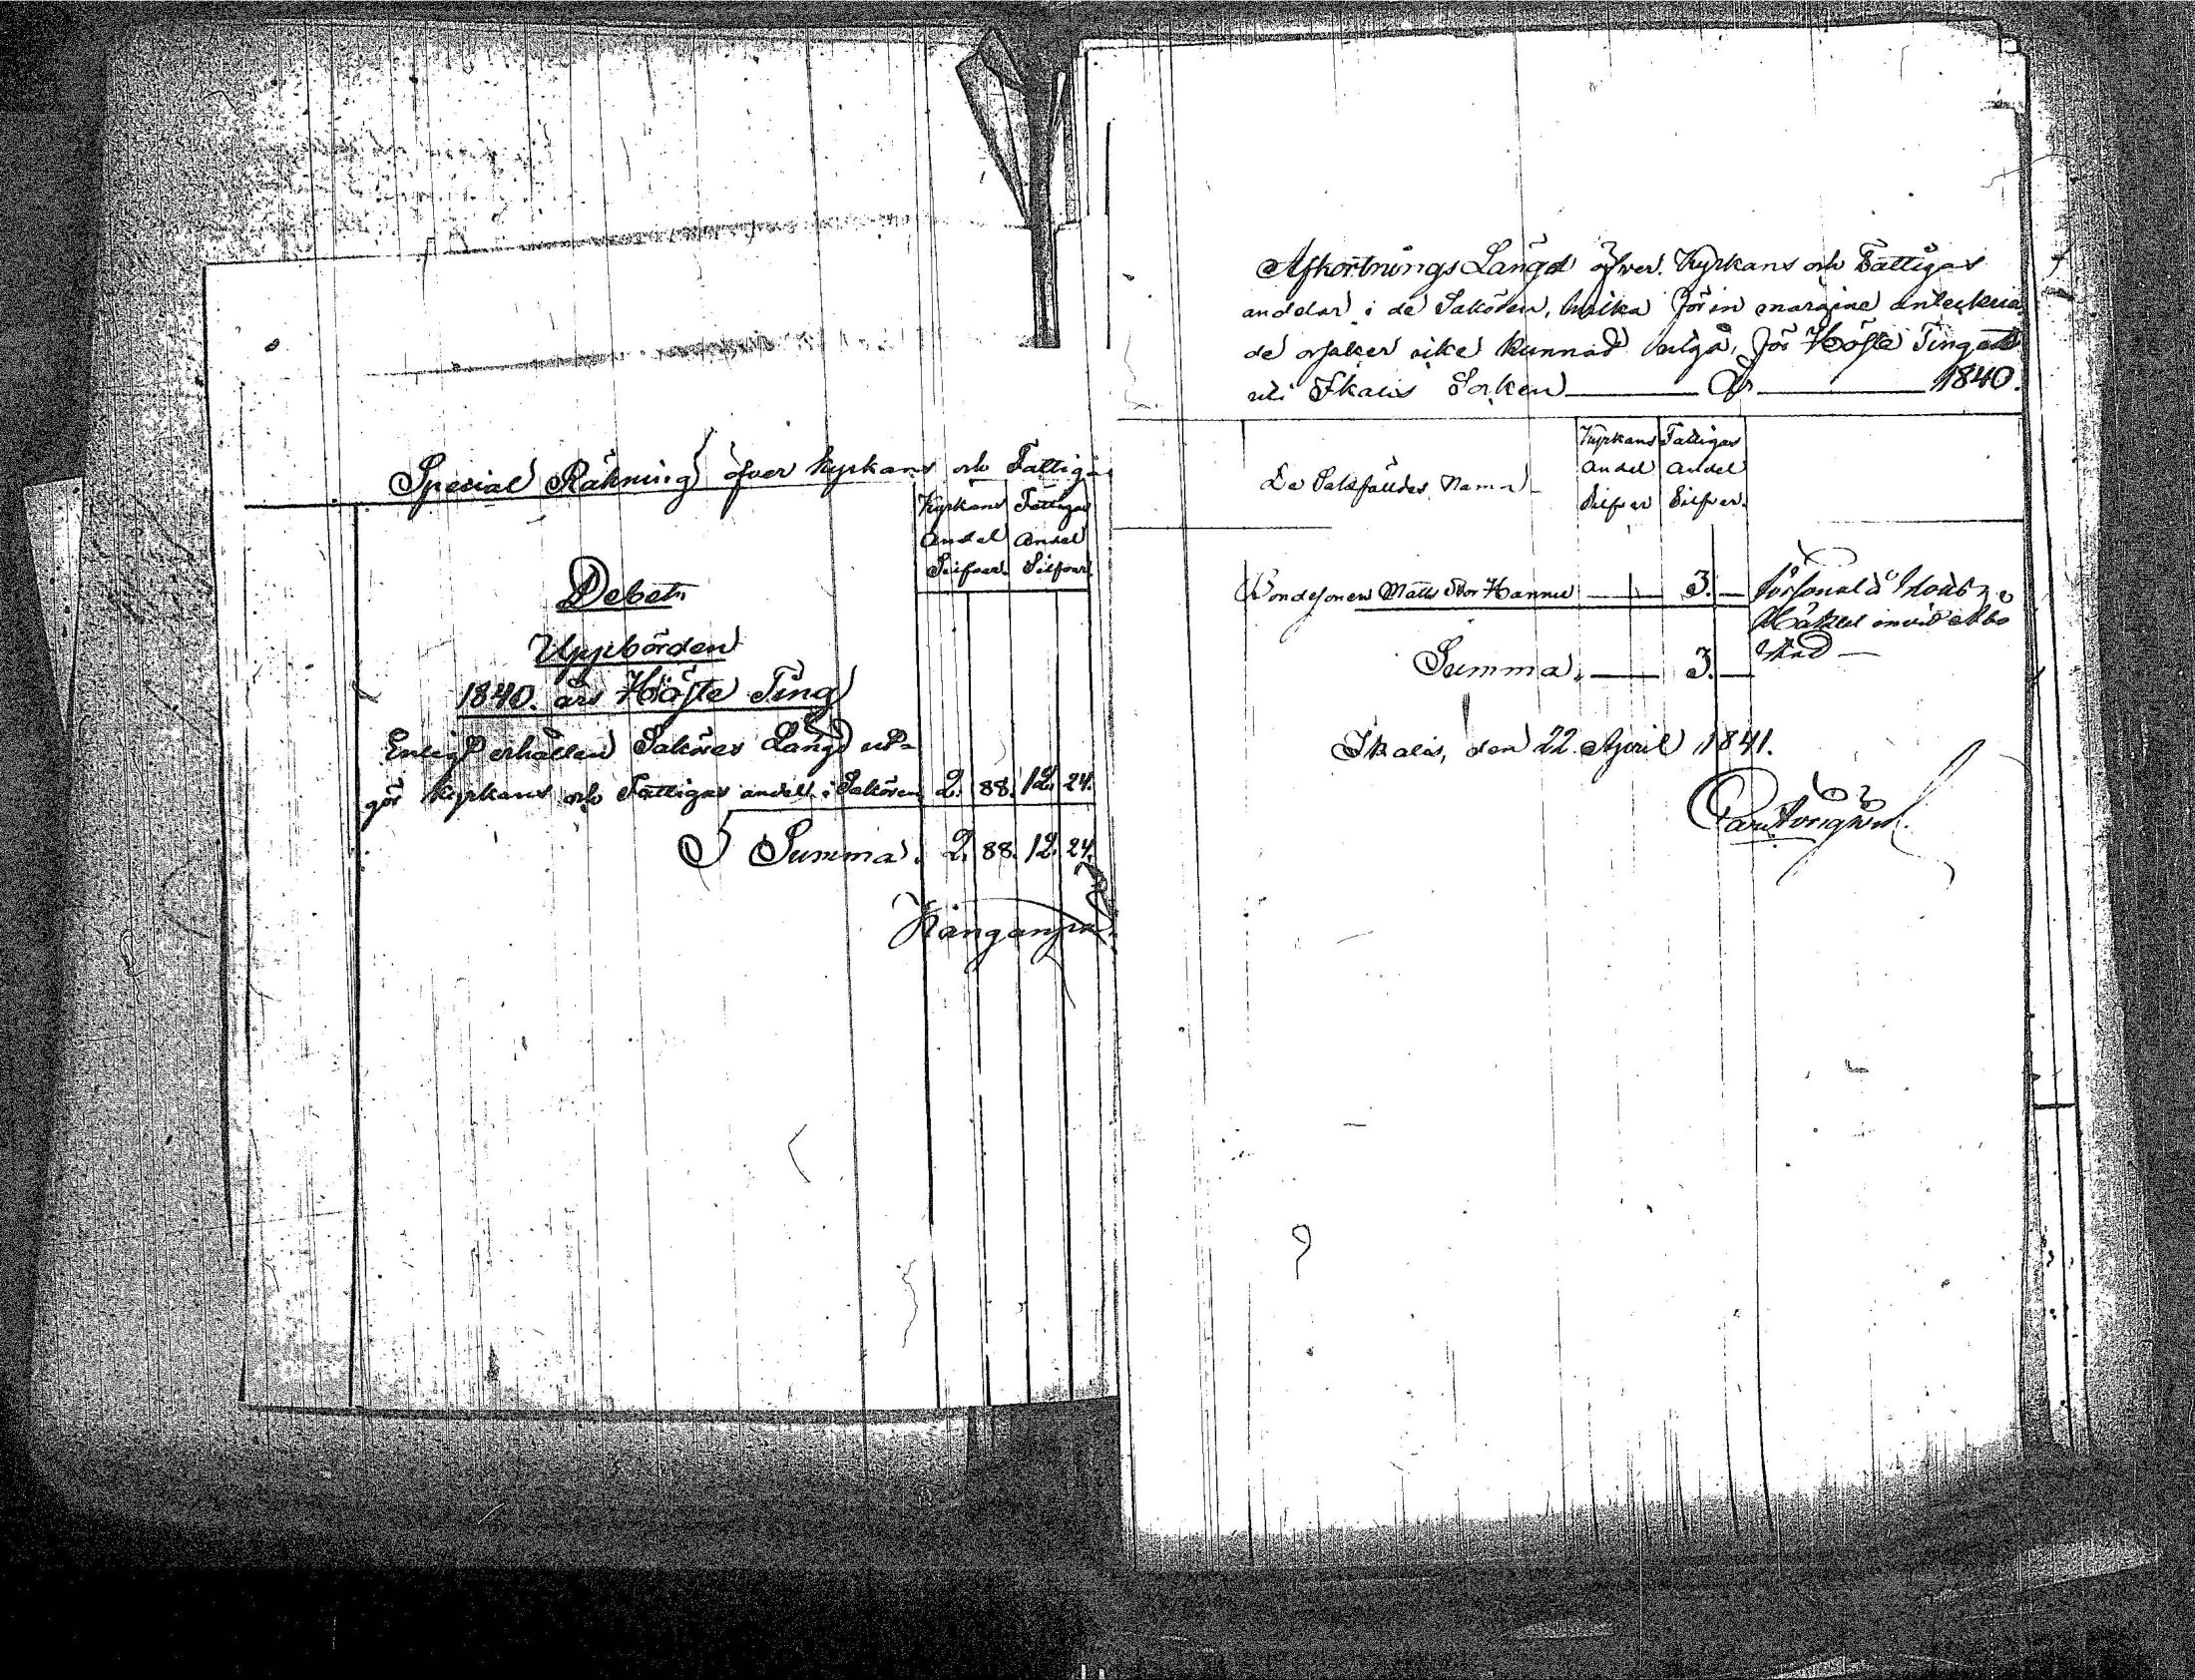 Special Räkning öfver Kyrkans och Fattigas
Kyrkans Fattigas
Andel Andel
Silfver. Silfver.
Debet.
Uppbörden
1840. års Höste Ting
Enligt erhållen Saköres Längd ut-
gör Kyrkans och Fattigas andel i Sakören 2. 88. 12. 24.
Summa. 2. 88. 12. 24.
Afkortnings Längd öfver Kyrkans och Fattigas
andelar i de Sakören, hvilka för in margine anteckna
de orsaker icke kunnat utgå, för Höste Tinget
uti Ikalis Socken År 1840.
De Sakfälldes Namn
Kyrkans Fattigas
Andel Andel
Silfver Silfver.
Bondesonen Matts Hannu — 3. —
Häktet invid Åbo
Stad —
Summa. — 3. —
Ikalis, den 22 April 1841.